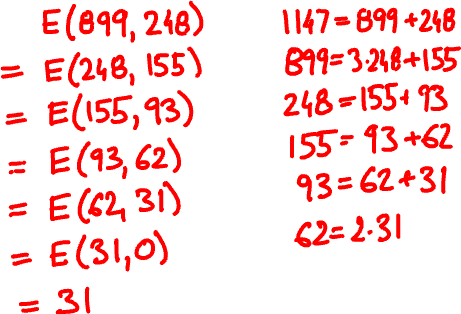 E(899, 248)
= E(248, 155)
= E(155, 93)
= E(93, 62)
= E(62, 31)
= E(31, 0)
= 31
1147 = 899 + 248
899 = 3·248 + 155
248 = 155 + 93
155 = 93 + 62
93 = 62 + 31
62 = 2·31